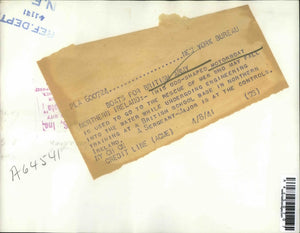 REF. DEPT
N. E.
PCP 600724 NEW YORK BUREAU
BOATS FOR BRITISH ARMY
NORTHERN IRELAND: THIS ODD-SHAPED MOTORBOAT
IS USED TO GO TO THE RESCUE OF MEN WHO MAY FALL
INTO THE WATER WHILE UNDERGOING ENGINEERING
TRAINING AT A BRITISH SCHOOL BASE IN NORTHERN
IRELAND. A SERGEANT-MAJOR IS AT THE CONTROLS.
CREDIT LINE (ACME) 4/8/41 (75)
A64541